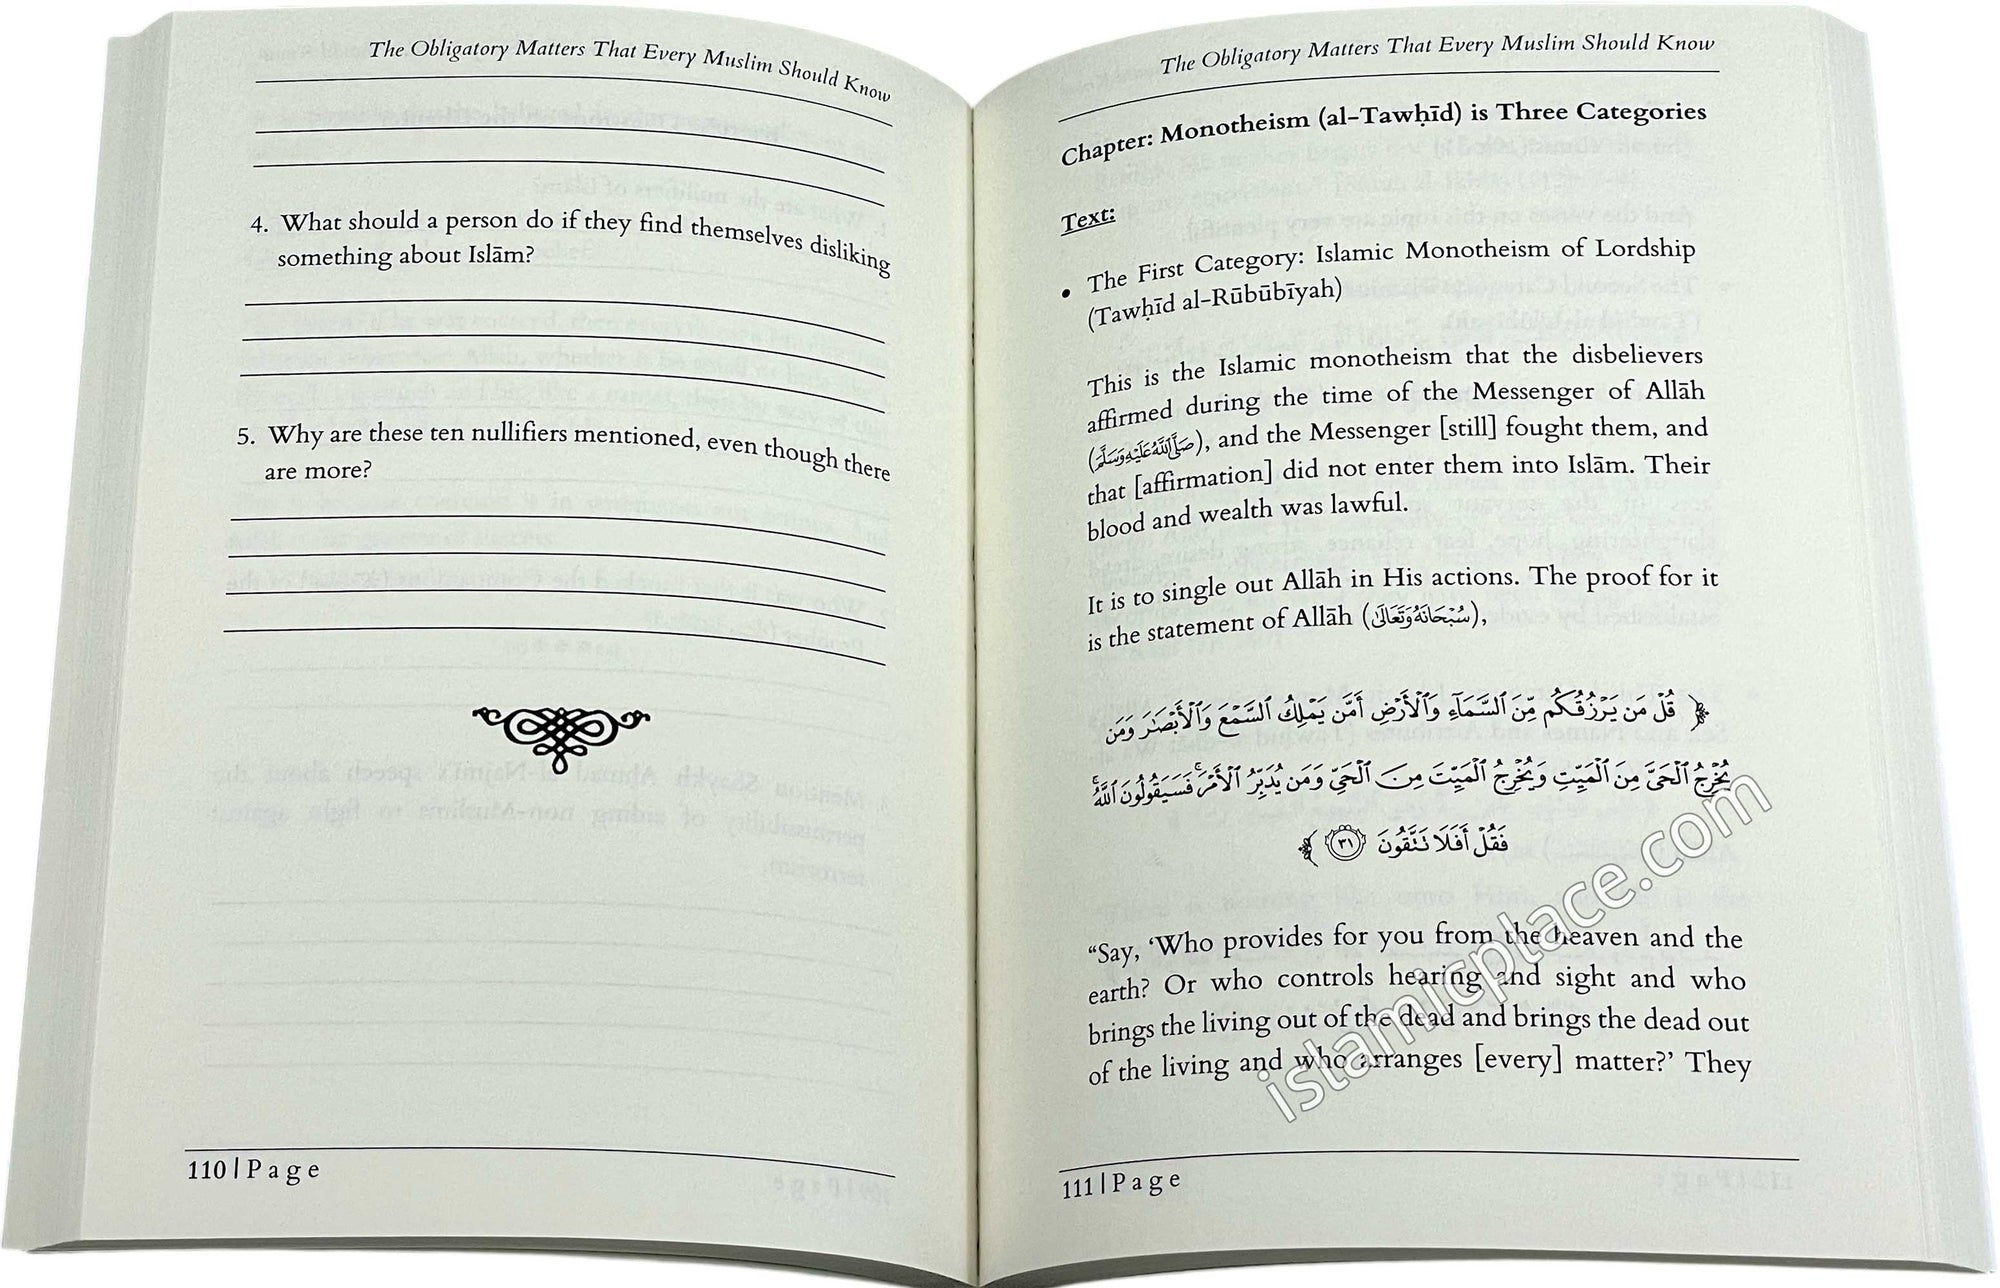 The Obligatory Matters That Every Muslim Should Know
4. What should a person do if they find themselves disliking
something about Islām?
5. Why are these ten nullifiers mentioned, even though there
are more?
110 | P a g e
The Obligatory Matters That Every Muslim Should Know
Chapter: Monotheism (al-Tawḥīd) is Three Categories
Text:
• The First Category: Islamic Monotheism of Lordship
(Tawḥīd al-Rūbūbīyah)
This is the Islamic monotheism that the disbelievers
affirmed during the time of the Messenger of Allāh
(صَلَّى اللَّهُ عَلَيْهِ وَسَلَّمَ), and the Messenger [still] fought them, and
that [affirmation] did not enter them into Islām. Their
blood and wealth was lawful.
It is to single out Allāh in His actions. The proof for it
is the statement of Allāh (سُبْحَانَهُ وَتَعَالَى),
﴿ قُلْ مَن يَرْزُقُكُم مِّنَ ٱلسَّمَآءِ وَٱلْأَرْضِ أَمَّن يَمْلِكُ ٱلسَّمْعَ وَٱلْأَبْصَٰرَ وَمَن
يُخْرِجُ ٱلْحَىَّ مِنَ ٱلْمَيِّتِ وَيُخْرِجُ ٱلْمَيِّتَ مِنَ ٱلْحَىِّ وَمَن يُدَبِّرُ ٱلْأَمْرَ ۚ فَسَيَقُولُونَ ٱللَّهُ ۚ
فَقُلْ أَفَلَا تَتَّقُونَ ٣١ ﴾
“Say, ‘Who provides for you from the heaven and the
earth? Or who controls hearing and sight and who
brings the living out of the dead and brings the dead out
of the living and who arranges [every] matter?’ They
111 | P a g e
islamicplace.com